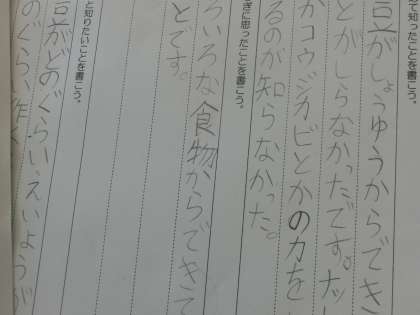 て知ったことを書こう。
豆がしょうゆうからでき
とがしらなかったです。ナッ
かコウジカビとかの力を
るのが知らなかった。
ぎに思ったことを書こう。
ろいろな食物からできて
とです。
と知りたいことを書こう。
豆がどのぐらい、えいようが
のぐらい作く